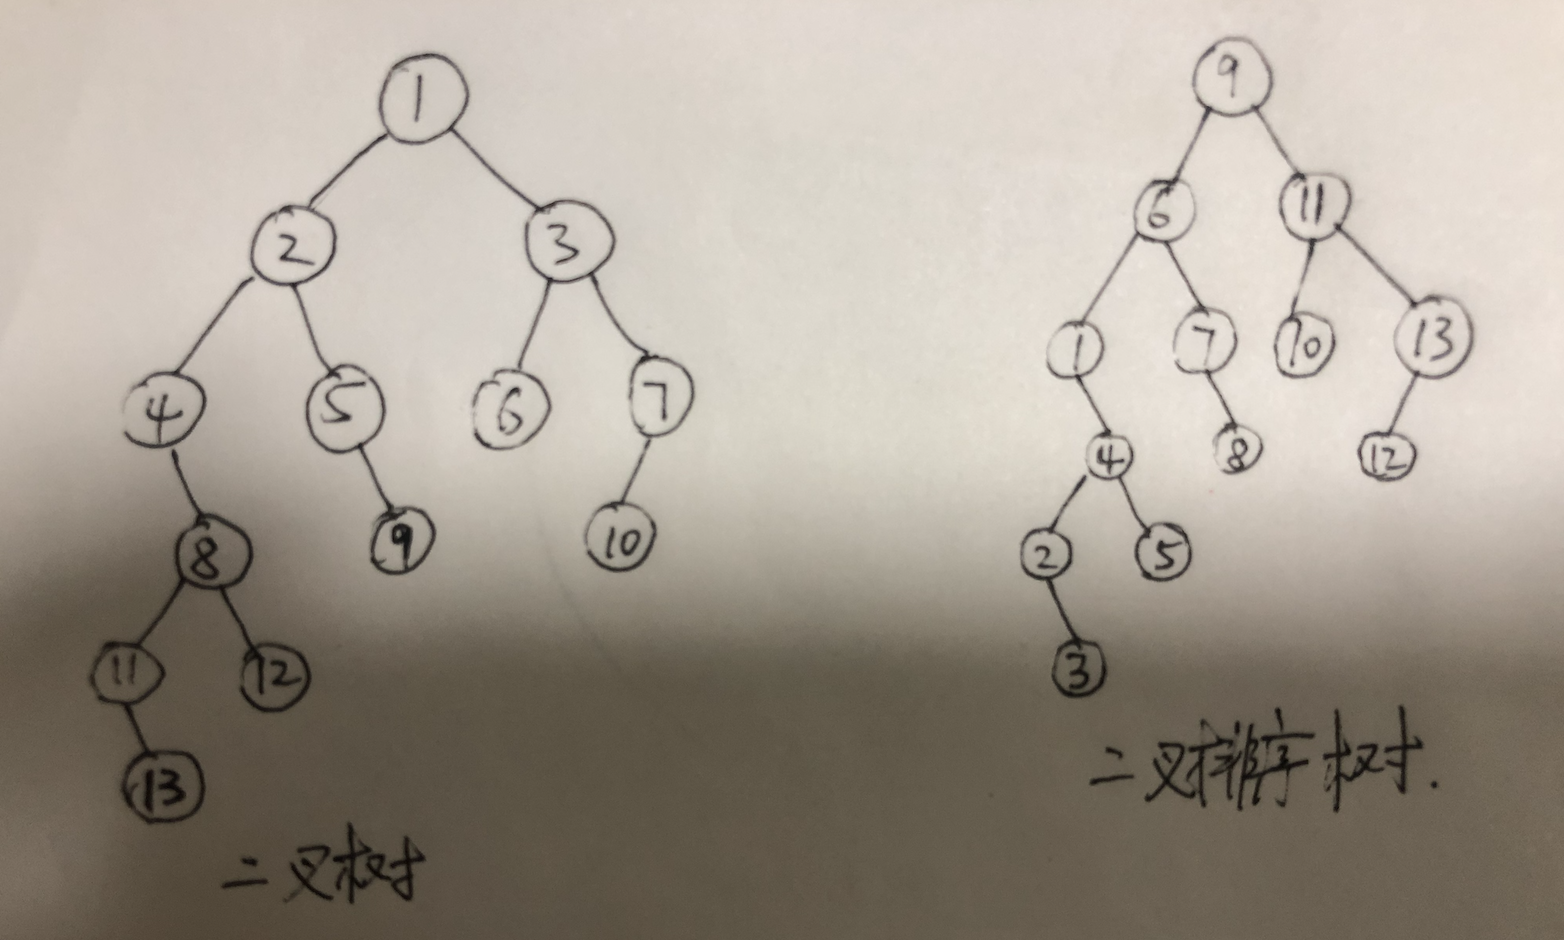 1
2 3
4 5 6 7
8 9 10
11 12
13
二叉树
9
6 11
1 7 10 13
4 8 12
2 5
3
二叉排序树.